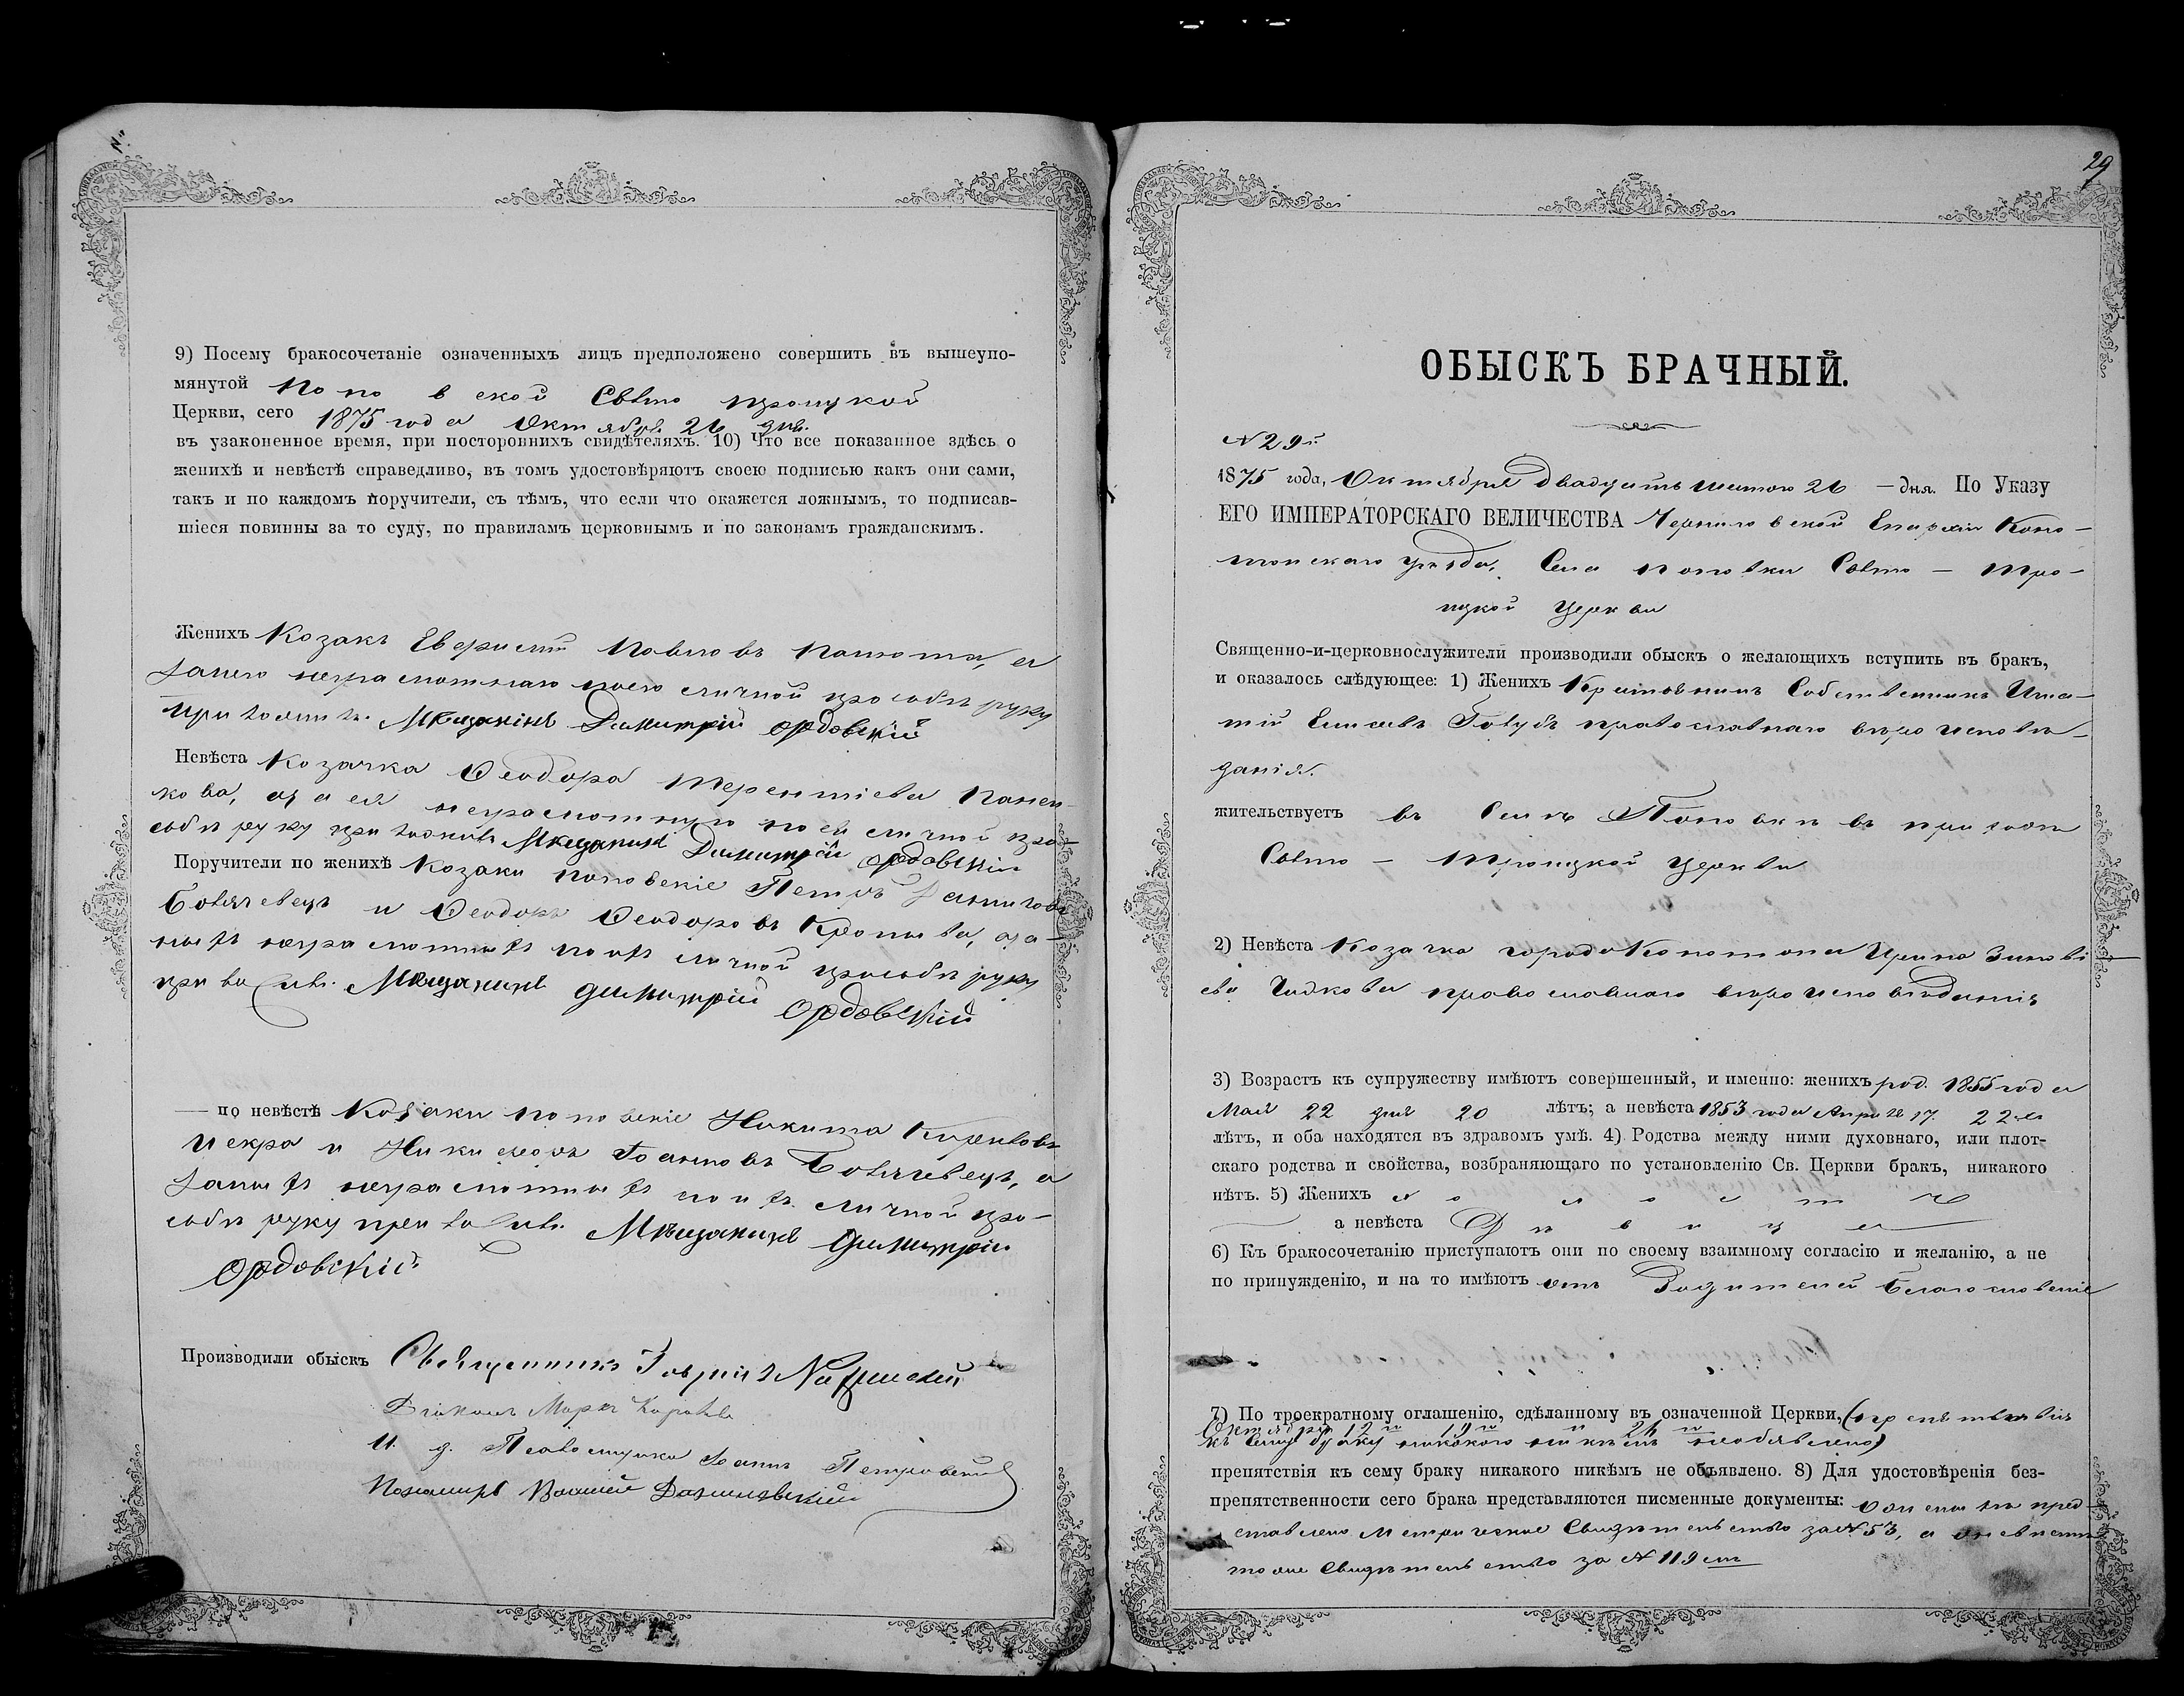 9) Посему бракосочетаніе означенныхъ лицъ предположено совершить въ вышеупо-
мянутой Поповской Свято троицкой
Церкви, сего 1875 года Октября 26 дня.
въ узаконенное время, при постороннихъ свидѣтеляхъ. 10) Что все показанное здѣсь о
женихѣ и невѣстѣ справедливо, въ томъ удостовѣряютъ своею подписью какъ они сами,
такъ и по каждомъ поручители, съ тѣмъ, что если что окажется ложнымъ, то подписав-
шіеся повинны за то суду, по правиламъ церковнымъ и по законамъ гражданскимъ.
Женихъ Козакъ Еверистъ Павловъ а
занего неграмотнаго поего личной прозьбѣ руку
приложилъ. Мѣщанинъ Димитрій Ордовскій
Невѣста Козачка Ѳеодора Терентіева Панен-
кова, аза ея неграмотную по ея личной прo-
зьбѣ руку приложилъ Мѣщанинъ Димитрій Ордовскій
Поручители по женихѣ Козаки Поповскіе Петръ Даниловъ
и Ѳеодоръ Ѳеодоровъ Кропива, аза
ныхъ неграмотныхъ поихъ личной прозьбѣ руку
приложилъ. Мѣщанинъ Димитрій
Ордовскій
— по невѣстѣ Козаки поповскіе Никита
Искра и Никифоръ Іоанновъ а
заныхъ неграмотныхъ поихъ личной про-
зьбѣ руку приложилъ. Мѣщанинъ Димитрій
Ордовскій
Производили обыскъ Священникъ Гавріилъ
Діаконъ Марко
И. д. Псаломщика Іоаннъ Петровскій
Пономарь Василій
29
ОБЫСКЪ БРАЧНЫЙ.
N 29й.
1875 года, Октября двадцать шестого 26 — дня. По Указу
ЕГО ИМПЕРАТОРСКАГО ВЕЛИЧЕСТВА Черниговской Епархіи Коно-
топскаго уѣзда, Села Поповки Свято — Тро-
ицкой Церкви
Священно-и-церковнослужители производили обыскъ о желающихъ вступить въ бракъ,
и оказалось слѣдующее: 1) Женихъ Крестьянинъ Собственникъ Игна-
тій Елисеевъ Голубъ православнаго вѣроисповѣ-
данія.
жительствуетъ въ Селѣ Поповкѣ въ приходѣ
Свято — Троицкой Церкви
2) Невѣста Козачка города Конотопа Ирина Зиновi-
ева православнаго вѣроисповѣданія
3) Возрастъ къ супружеству имѣютъ совершенный, и именно: женихъ род. 1855 года
Мая 22 дня 20 лѣтъ; а невѣста 1853 года Апреля 17. 22
лѣтъ, и оба находятся въ здравомъ умѣ. 4) Родства между ними духовнаго, или плот-
скаго родства и свойства, возбраняющаго по установленію Св. Церкви бракъ, никакого
нѣтъ. 5) Женихъ холостъ
а невѣста Дѣвица
6) Къ бракосочетанію приступаютъ они по своему взаимному согласію и желанію, а не
по принужденію, и на то имѣютъ отъ Родителей благословеніе
7) По троекратному оглашенію, сдѣланному въ означенной Церкви, (препятствія
Октября 12 19 и 26
къ сему браку никакого никѣмъ необъявлено)
препятствія къ сему браку никакого никѣмъ не объявлено. 8) Для удостовѣренія без-
препятственности сего брака представляются писменные документы: пред-
ставлено Метрическое Свидѣтельство за N 53, а оневѣстѣ
тоже Свидѣтельство за N 119